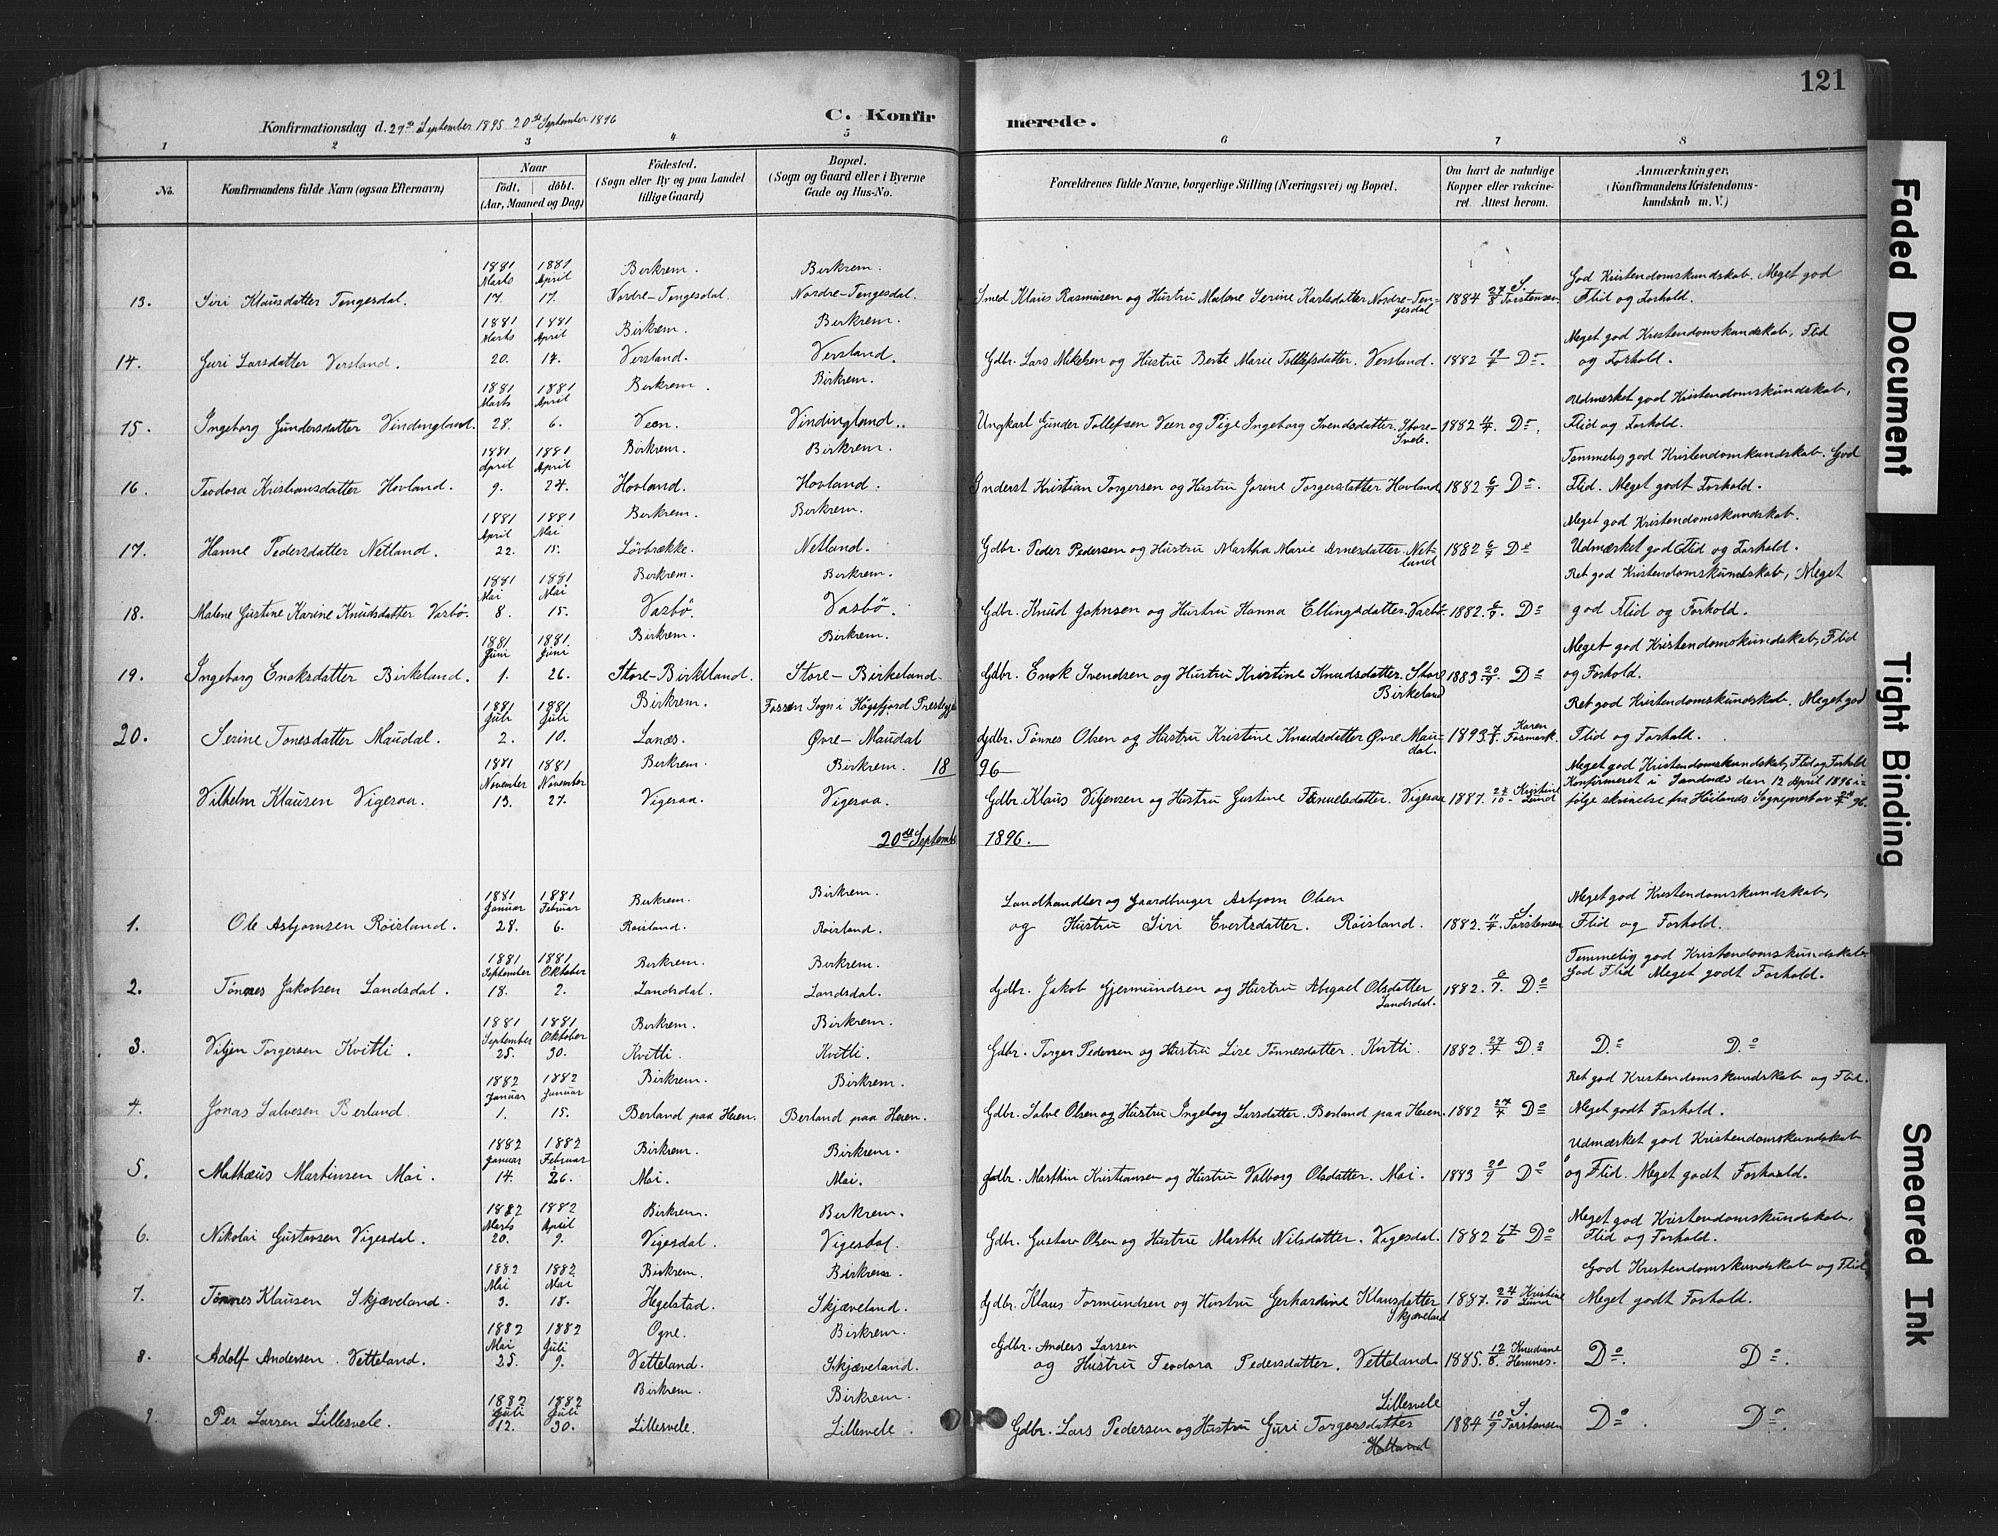 121
Konfirmationsdag d. 29de September 1895 20de September 1896
C. Konfirmerede.
1 2 3 4 5 6 7 8
No. Konfirmandens fulde Navn (ogsaa Efternavn) Naar födt. döbt. (Aar, Maaned og Dag) Födested. (Sogn eller By og paa Landet tillige Gaard) Bopæl. (Sogn og Gaard eller i Byerne Gade og Hus-No. Forældrenes fulde Navne, borgerlige Stilling (Næringsvei) og Bopæl. Om havt de naturlige Kopper eller vakcineret. Attest herom. Anmærkninger. (Konfirmandens Kristendomskundskab m. V.)
13. Siri Klausdatter Tengesdal. 1881 Marts 17. 1881 April 17. Birkrem. Nordre-Tengesdal. Birkrem. Nordre-Tengesdal. Smed Klaus Rasmusen og Hustru Malene Serine Karlsdatter Nordre-Tengesdal 1884 27/8 S. Torstensen God Kristendomskundskab. Meget god Flid og Forhold.
14. Guri Larsdatter Versland. 1881 Marts 20. 1881 April 14. Birkrem. Versland. Birkrem. Versland. Gdbr. Lars Mikelsen og Hustru Berte Marie Tollefsdatter. Versland. 1882 19/7 Do. Meget god Kristendomskundskab, Flid og Forhold.
15. Ingeborg Gundersdatter Vindingland. 1881 Marts 28. 1881 April 6. Birkrem. Veen. Birkrem. Vindingland. Ungkarl Gunder Tollefsen Veen og Pige Ingeborg Svendsdatter. Store-Svele. 1882 4/7. Do. Udmerket god Kristendomskundskab, Flid og Forhold.
16. Teodora Kristiansdatter Hovland. 1881 April 9. 1881 April 24. Birkrem. Hovland. Birkrem. Hovland. Inderst Kristian Torgersen og Hustru Jorine Torgersdatter Hovland 1882 6/7 Do. Temmelig god Kristendomskundskab. God Flid. Meget godt Forhold.
17. Hanne Pedersdatter Netland. 1881 April 22. 1881 Mai 15. Birkrem. Lövbrække. Birkrem. Netland. Gdbr. Peder Pedersen og Hustru Martha Marie Arnesdatter. Netland 1882 6/7 Do Meget god Kristendomskundskab. Udmærket god Flid og Forhold.
18. Malene Gustine Karine Knudsdatter Vasbö. 1881 Mai 8. 1881 Mai 15. Birkrem. Vasbö. Birkrem. Vasbö. Gdbr. Knud Johnsen og Hustru Hanna Ellingsdatter. Vasbö. 1882. 6/7. Do Ret god Kristendomskundskab, Meget god Flid og Forhold.
19. Ingeborg Enoksdatter Birkeland. 1881 Juni 1. 1881. Juni 26. Birkrem. Store-Birkeland. Birkrem. Store-Birkeland. Gdbr. Enok Svendsen og Hustru Kristine Knudsdatter. Store Birkeland 1883 20/9. Do Meget god Kristendomskundskab, Flid og Forhold.
20. Serine Tonesdatter Maudal. 1881 Juli 2. 1881 Juli 10. Birkrem. Lanæs. Fossan Sogn i Högsfjord Prestegj Øvre-Maudal Gdbr. Tønnes Olsen og Hustru Kristine Knudsdatter Øvre Maudal. 1893. 7/8. Karen Fosmark. Ret god Kristendomskundskab. Meget god Flid og Forhold.
1896
Vilhelm Klausen Vigesaa. 1881 November 13. 1881 November 27. Birkrem. Vigesaa. Birkrem. Vigesaa. Gdbr. Klaus Viljensen og Hustru Gustine Tønnelsdatter. Vigesaa 1887. 24/10. Kristine Lund Meget god Kristendomskundskab, Flid og Forhold Konfirmeret i Sandnæs den 12 April 1896 ifölge skrivelse fra Höilands Sogneprest av 24/4 96.
20de September 1896.
1. Ole Asbjørnsen Röisland. 1881 Januar 28. 1881 Februar 6. Birkrem. Röisland. Birkrem. Röisland. Landhandler og Gaardbruger Asbjørn Olsen og Hustru Siri Evertsdatter. Röisland. 1882. 11/4. S. Torstensen Meget god Kristendomskundskab, Flid og Forhold.
2. Tönnes Jakobsen Landsdal. 1881 September 18. 1881 Oktober 2. Birkrem. Landsdal. Birkrem. Landsdal. Gdbr. Jakob Gjermundsen og Hustru Abigael Olsdatter Landsdal. 1882. 6/7. Do Temmelig god Kristendomskundskab God Flid Meget godt Forhold.
3. Viljen Torgersen Kvitli. 1881 September 25. 1881 Oktober 30. Birkrem. Kvitli. Birkrem. Kvitli. Gdbr. Torger Pedersen og Hustru Lise Tönnesdatter. Kvitli. 1882. 27/7 Do Do Do
4. Jonas Salvesen Berland. 1882 Januar 1. 1882 Januar 15. Birkrem. Berland paa Heien. Birkrem. Berland paa Heien. Gdbr. Salve Olsen og Hustru Ingeborg Larsdatter. Berland paa Heien. 1882 27/4 Do Ret god Kristendomskundskab og Flid. Meget godt Forhold.
5. Mathæus Martinsen Moi. 1882 Januar 14. 1882 Februar 26. Birkrem. Moi. Birkrem. Moi. Gdbr. Marthin Kristiansen og Hustru Valborg Olsdatter. Moi. 1883 20/9 Do Udmærket god Kristendomskundskab og Flid. Meget godt Forhold.
6. Nikolai Gustavsen Vigesdal. 1882 Marts 20. 1882 April 9. Birkrem. Vigesdal. Birkrem. Vigesdal. Gdbr. Gustav Olsen og Hustru Marthe Nilsdatter. Vigesdal. 1882 17/6 Do Meget god Kristendomskundskab, Flid og Forhold.
7. Tønnes Klausen Skjæveland. 1882 Mai 3. 1882 Mai 18. Birkrem. Hegelstad. Birkrem. Skjæveland. Gdbr. Klaus Tormundsen og Hustru Gerhardine Klausdatter Skjæveland 1887. 24/10 Kristine Lund God Kristendomskundskab og Flid Meget godt Forhold.
8. Adolf Andersen Vetteland. 1882 Mai 25. 1882 Juli 9. Ogne. Vetteland. Birkrem. Skjæveland. Gdbr. Anders Larsen og Hustru Teodora Pedersdatter. Vetteland 1885. 12/8. Knudiane Hennes. Do. Do.
9. Per Larsen Lillesvele. 1882 Juli 12. 1882 Juli 30. Birkrem. Lillesvele. Birkrem. Lillesvele. Gdbr. Lars Pedersen og Hustru Guri Torgersdatter Lillesvele 1884 10/9 S. Torstensen Do. Do.
Faded Document
Tight Binding
Smeared Ink